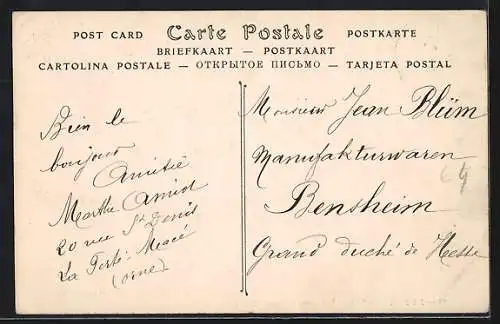 POST CARD Carte Postale POSTKARTE
BRIEFKAART — POSTKAART
CARTOLINA POSTALE — ОТКРЫТОЕ ПИСЬМО — TARJETA POSTAL
Bien le
bonjour
Amitié
Marthe Amiot
20 rue St Denis
La Ferté-Macé
(orne)
Monsieur Jean Blüm
Manufakturwaren
Bensheim
Grand duché de Hesse